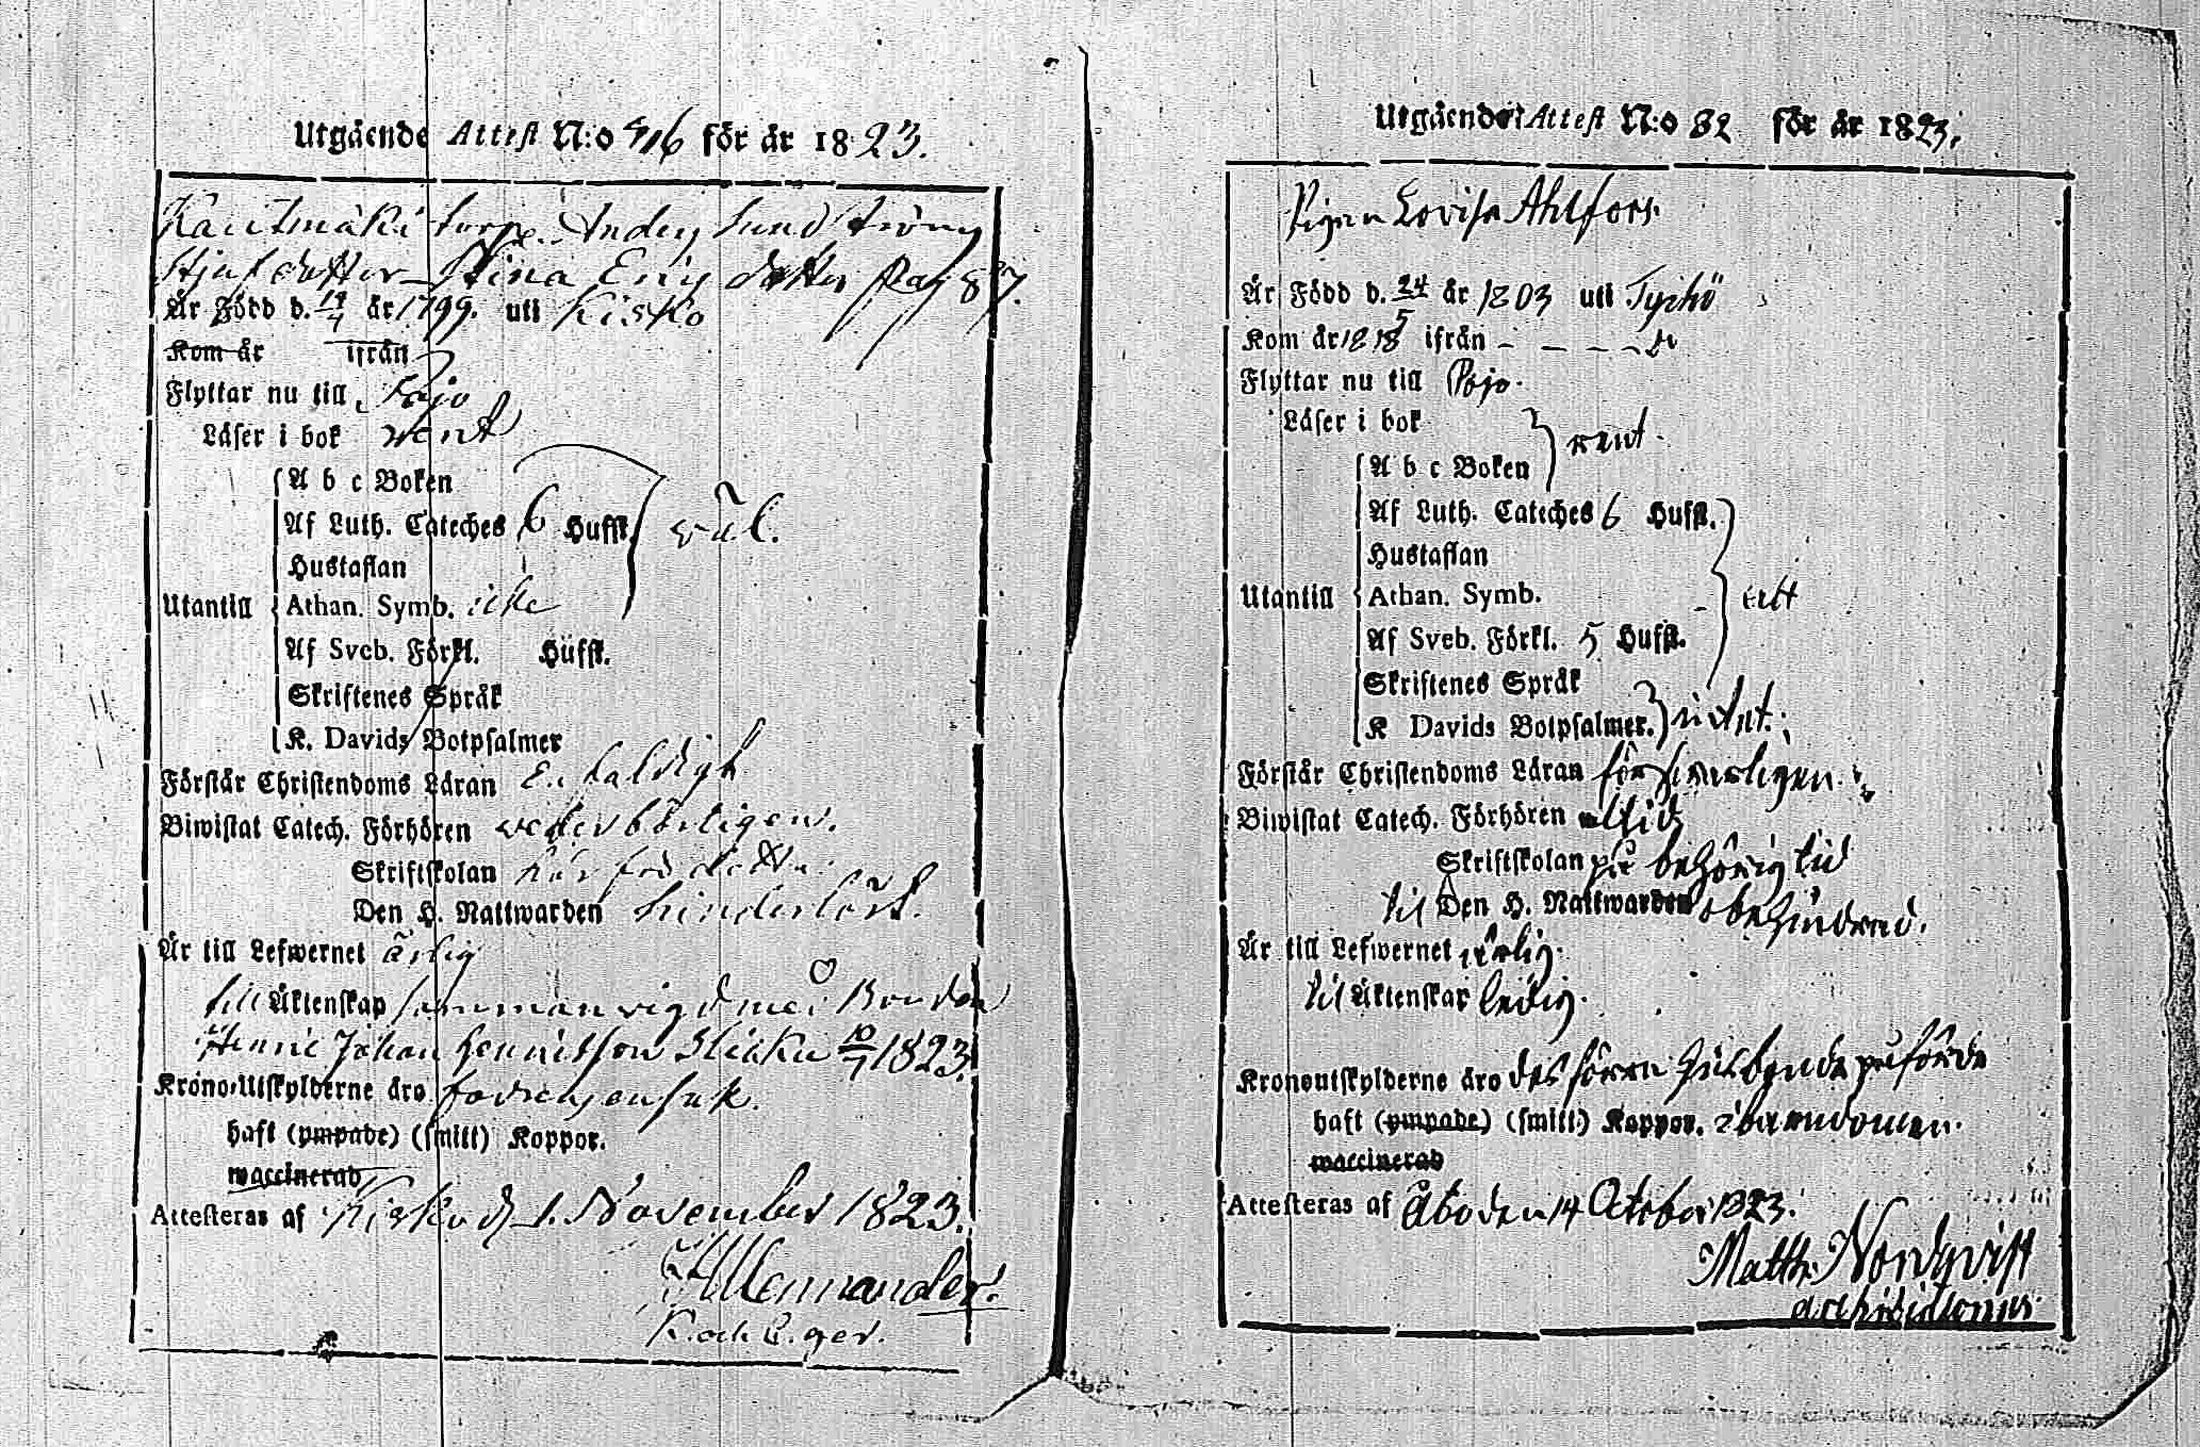 Utgående Attest N:o 416 för år 1823.
Kautmäki torp. Anders Sundströms
Stjufdotter Stina Erics dotter Pag 87.
Är Född d. år 1799. uti Kisko
Kom år ifrån
Flyttar nu till Pojo
Läser i bok rent
A b c Boken
Af Luth. Cateches 6 Hufst. väl.
Hustaflan
Utantill Athan. Symb. icke
Af Sveb. Förkl. Hufst.
Skriftenes Språk
K. Davids Botpsalmer
Förstår Christendoms Läran Enfaldigt
Biwistat Catech. Förhören vederbörligen.
Skriftskolan här före detta
Den H. Nattwarden hinderlöst.
Är till Lefwernet ärlig
till Äktenskap sammanvigd med Bonden
Henric Johan Henricsson 10/7 1823.
Krono-Utskylderne äro
haft (ympade) (smitt) Koppor.
waccinerad
Attesteras af Kisko d. 1. November 1823.
Mennander.
Utgående Attest N:o 82 för år 1823.
Pigan Lovisa Ahlfors.
Är Född d. 24 år 1803 uti
Kom år 1818 ifrån - - - -
Flyttar nu till Pojo.
Läser i bok
A b c Boken rent.
Af Luth. Cateches 6 Hufst.
Hustaflan
Utantill Athan. Symb.
Af Sveb. Förkl. 5 Hufst.
Skriftenes Språk
K Davids Botpsalmer.
Förstår Christendoms Läran försvarligen.
Biwistat Catech. Förhören alltid
Skriftskolan på behörig tid
til Den H. Nattwarden obehindrad.
Är till Lefwernet ärlig.
til Äktenskap ledig.
Kronoutskylderne äro des förra Husbonde påförde
haft (ympade) (smitt) Koppor. i barndomen.
waccinerad
Attesteras af Åbo den 14 October 1823.
Matth. Nordqvist
archidiaconus